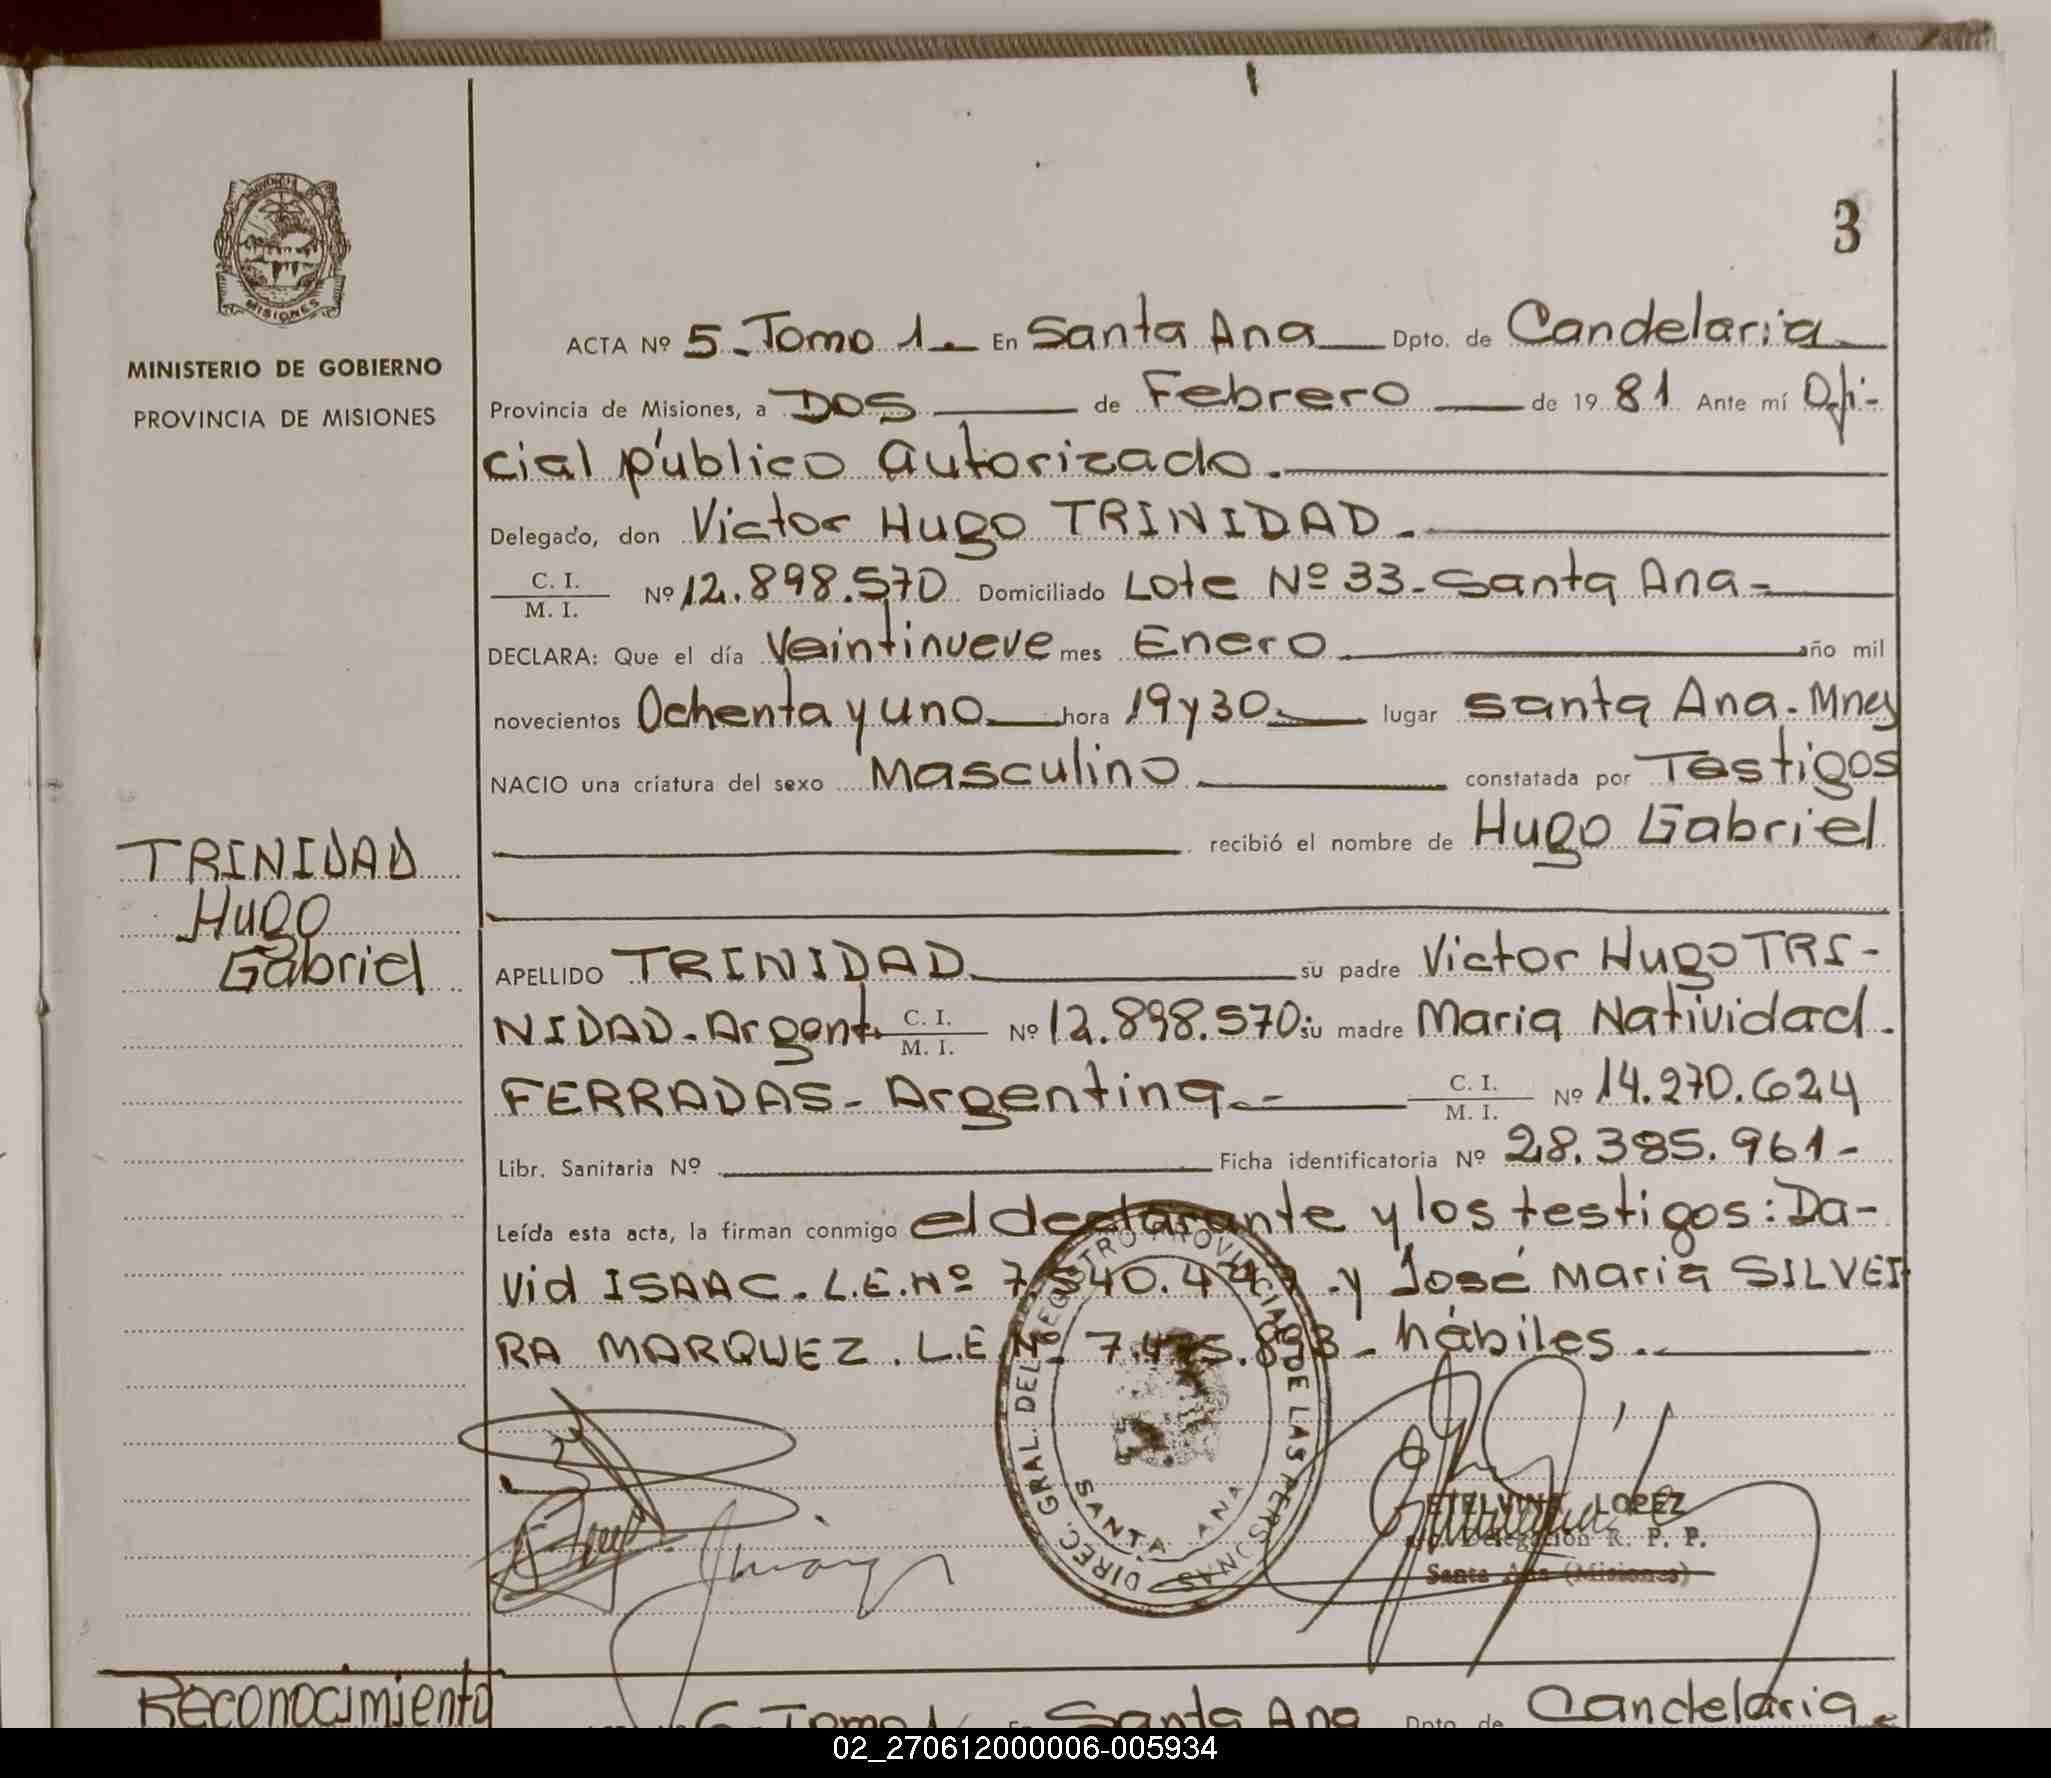 3
MISIONES
MINISTERIO DE GOBIERNO
PROVINCIA DE MISIONES
ACTA Nº 5 - Tomo 1. En Santa Ana Dpto. de Candelaria
Provincia de Misiones, a DOS de Febrero de 19 81 Ante mí Ofi-
cial público autorizado.
Delegado, don Victor Hugo TRINIDAD.
C. I. / M. I. Nº 12.898.570 Domiciliado Lote Nº 33 - Santa Ana -
DECLARA: Que el día Veintinueve mes Enero año mil
novecientos Ochenta y uno hora 19 y 30 lugar Santa Ana. Mnes
NACIO una criatura del sexo Masculino constatada por Testigos
recibió el nombre de Hugo Gabriel
TRINIDAD
Hugo
Gabriel
APELLIDO TRINIDAD su padre Victor Hugo TRI-
NIDAD - Argent. C. I. / M. I. Nº 12.898.570 su madre Maria Natividad.
FERRADAS - Argentina.- C. I. / M. I. Nº 14.270.624
Libr. Sanitaria Nº Ficha identificatoria Nº 28.385.961-
Leída esta acta, la firman conmigo el declarante y los testigos: Da-
vid ISAAC. L.E. Nº .y José Maria SILVEI
RA MARQUEZ. L.E. Nº 7.475.893 - hábiles.
DIREC. GRAL. DEL REGISTRO PROVINCIAL DE LAS PERSONAS
SANTA ANA
ETELVINA LOPEZ
Delegación R. P. P.
Santa Ana (Misiones)
Reconocimiento
6 - Tomo 1 En Santa Ana Dpto. de Candelaria
02_270612000006-005934